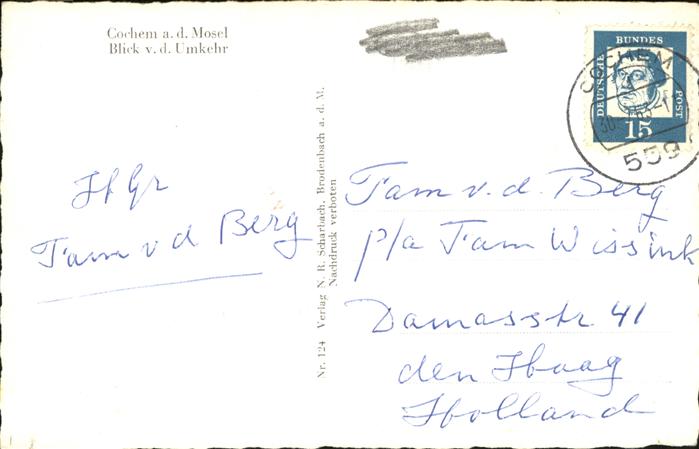 Cochem a. d. Mosel
Blick v. d. Umkehr
Hfgr
Fam v d Berg
Nr. 124 Verlag N. R. Scharbach, Brodenbach a. d. M.
Nachdruck verboten
DEUTSCHE BUNDES POST
15
COCHEM
559
Fam v. d. Berg
p/a Fam Wissink
Damasstr 41
den Haag
Holland